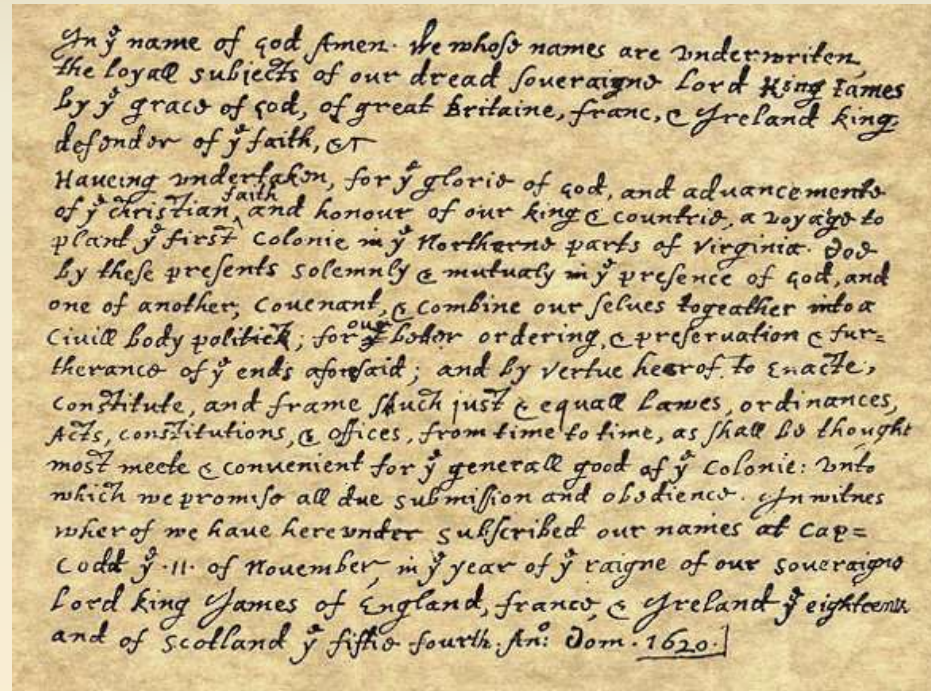 In yͤ name of god Amen. We whose names are vnderwriten,
the loyall subjects of our dread soveraigne Lord King Iames
by yͤ grace of god, of great Britaine, franc, & Ireland king,
defender of yͤ faith, &c
Haveing vndertaken, for yͤ glorie of god, and advancemente
of yͤ christian faith and honour of our king & countrie, a voyage to
plant yͤ first colonie in yͤ Northerne parts of Virginia. Doe
by these presents solemnly & mutualy in yͤ presence of god, and
one of another, covenant, & combine our selves togeather into a
Civill body politick; for our beter ordering, & preservation & fur=
therance of yͤ ends aforesaid; and by vertue hearof to Enacte,
constitute, and frame shuch just & equall Lawes, ordinances,
Acts, constitutions, & offices, from time to time, as shall be thought
most meete & convenient for yͤ generall good of yͤ colonie: vnto
which we promise all due submission and obedience. In witnes
wherof we have hereunder subscribed our names at Cap=
Codd yͤ .11. of November, in yͤ year of yͤ raigne of our soveraigne
Lord king James of England, france, & Ireland yͤ eighteenth
and of Scotland yͤ fiftie fourth. Anº: Dom. 1620.